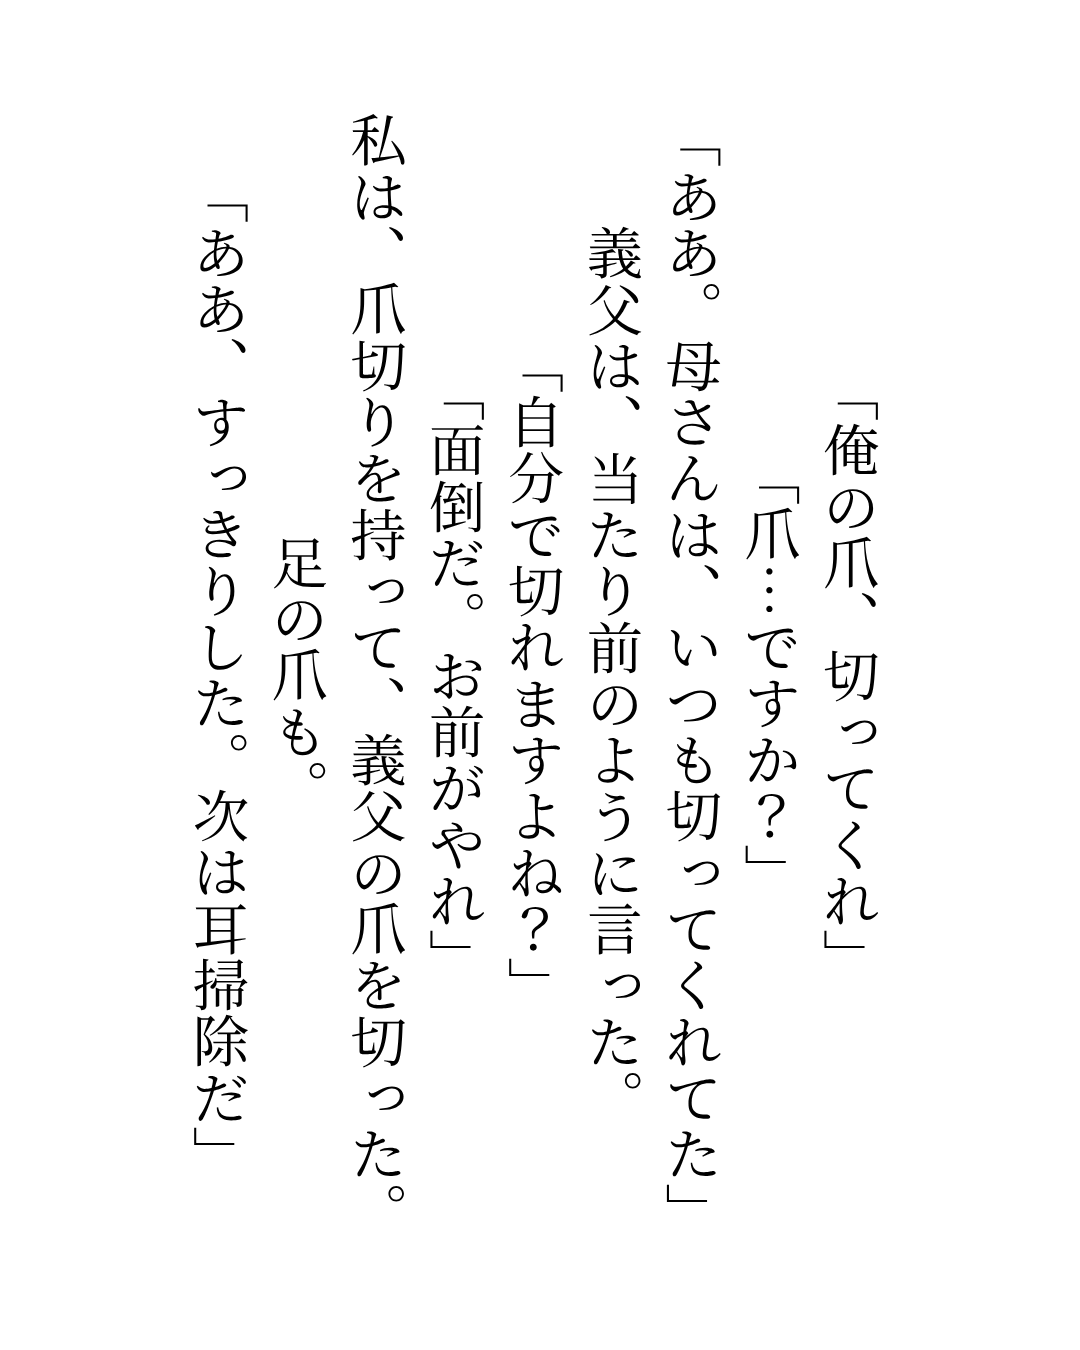 「俺の爪、切ってくれ」
「爪…ですか？」
「ああ。母さんは、いつも切ってくれてた」
義父は、当たり前のように言った。
「自分で切れますよね？」
「面倒だ。お前がやれ」
私は、爪切りを持って、義父の爪を切った。
足の爪も。
「ああ、すっきりした。次は耳掃除だ」